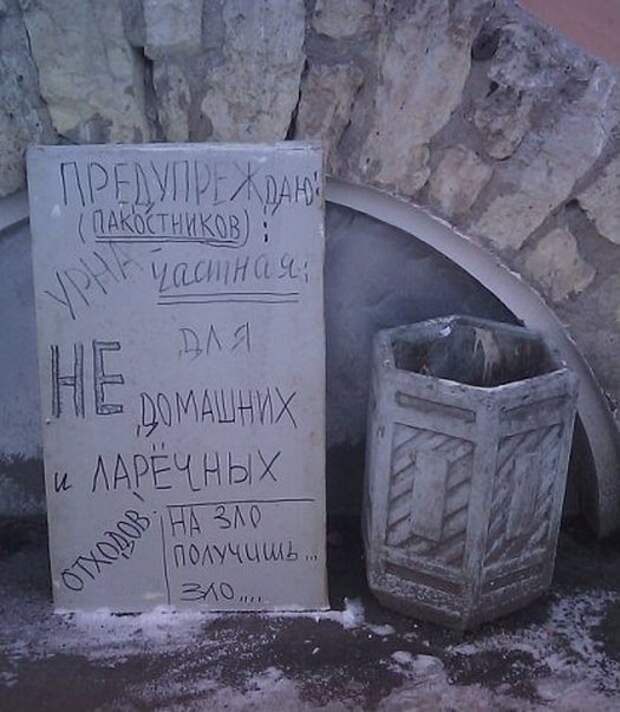 ПРЕДУПРЕЖДАЮ:
(ПАКОСТНИКОВ):
УРНА частная:
НЕ для
ДОМАШНИХ
и ЛАРЁЧНЫХ
ОТХОДОВ!
НА ЗЛО
ПОЛУЧИШЬ...
ЗЛО....